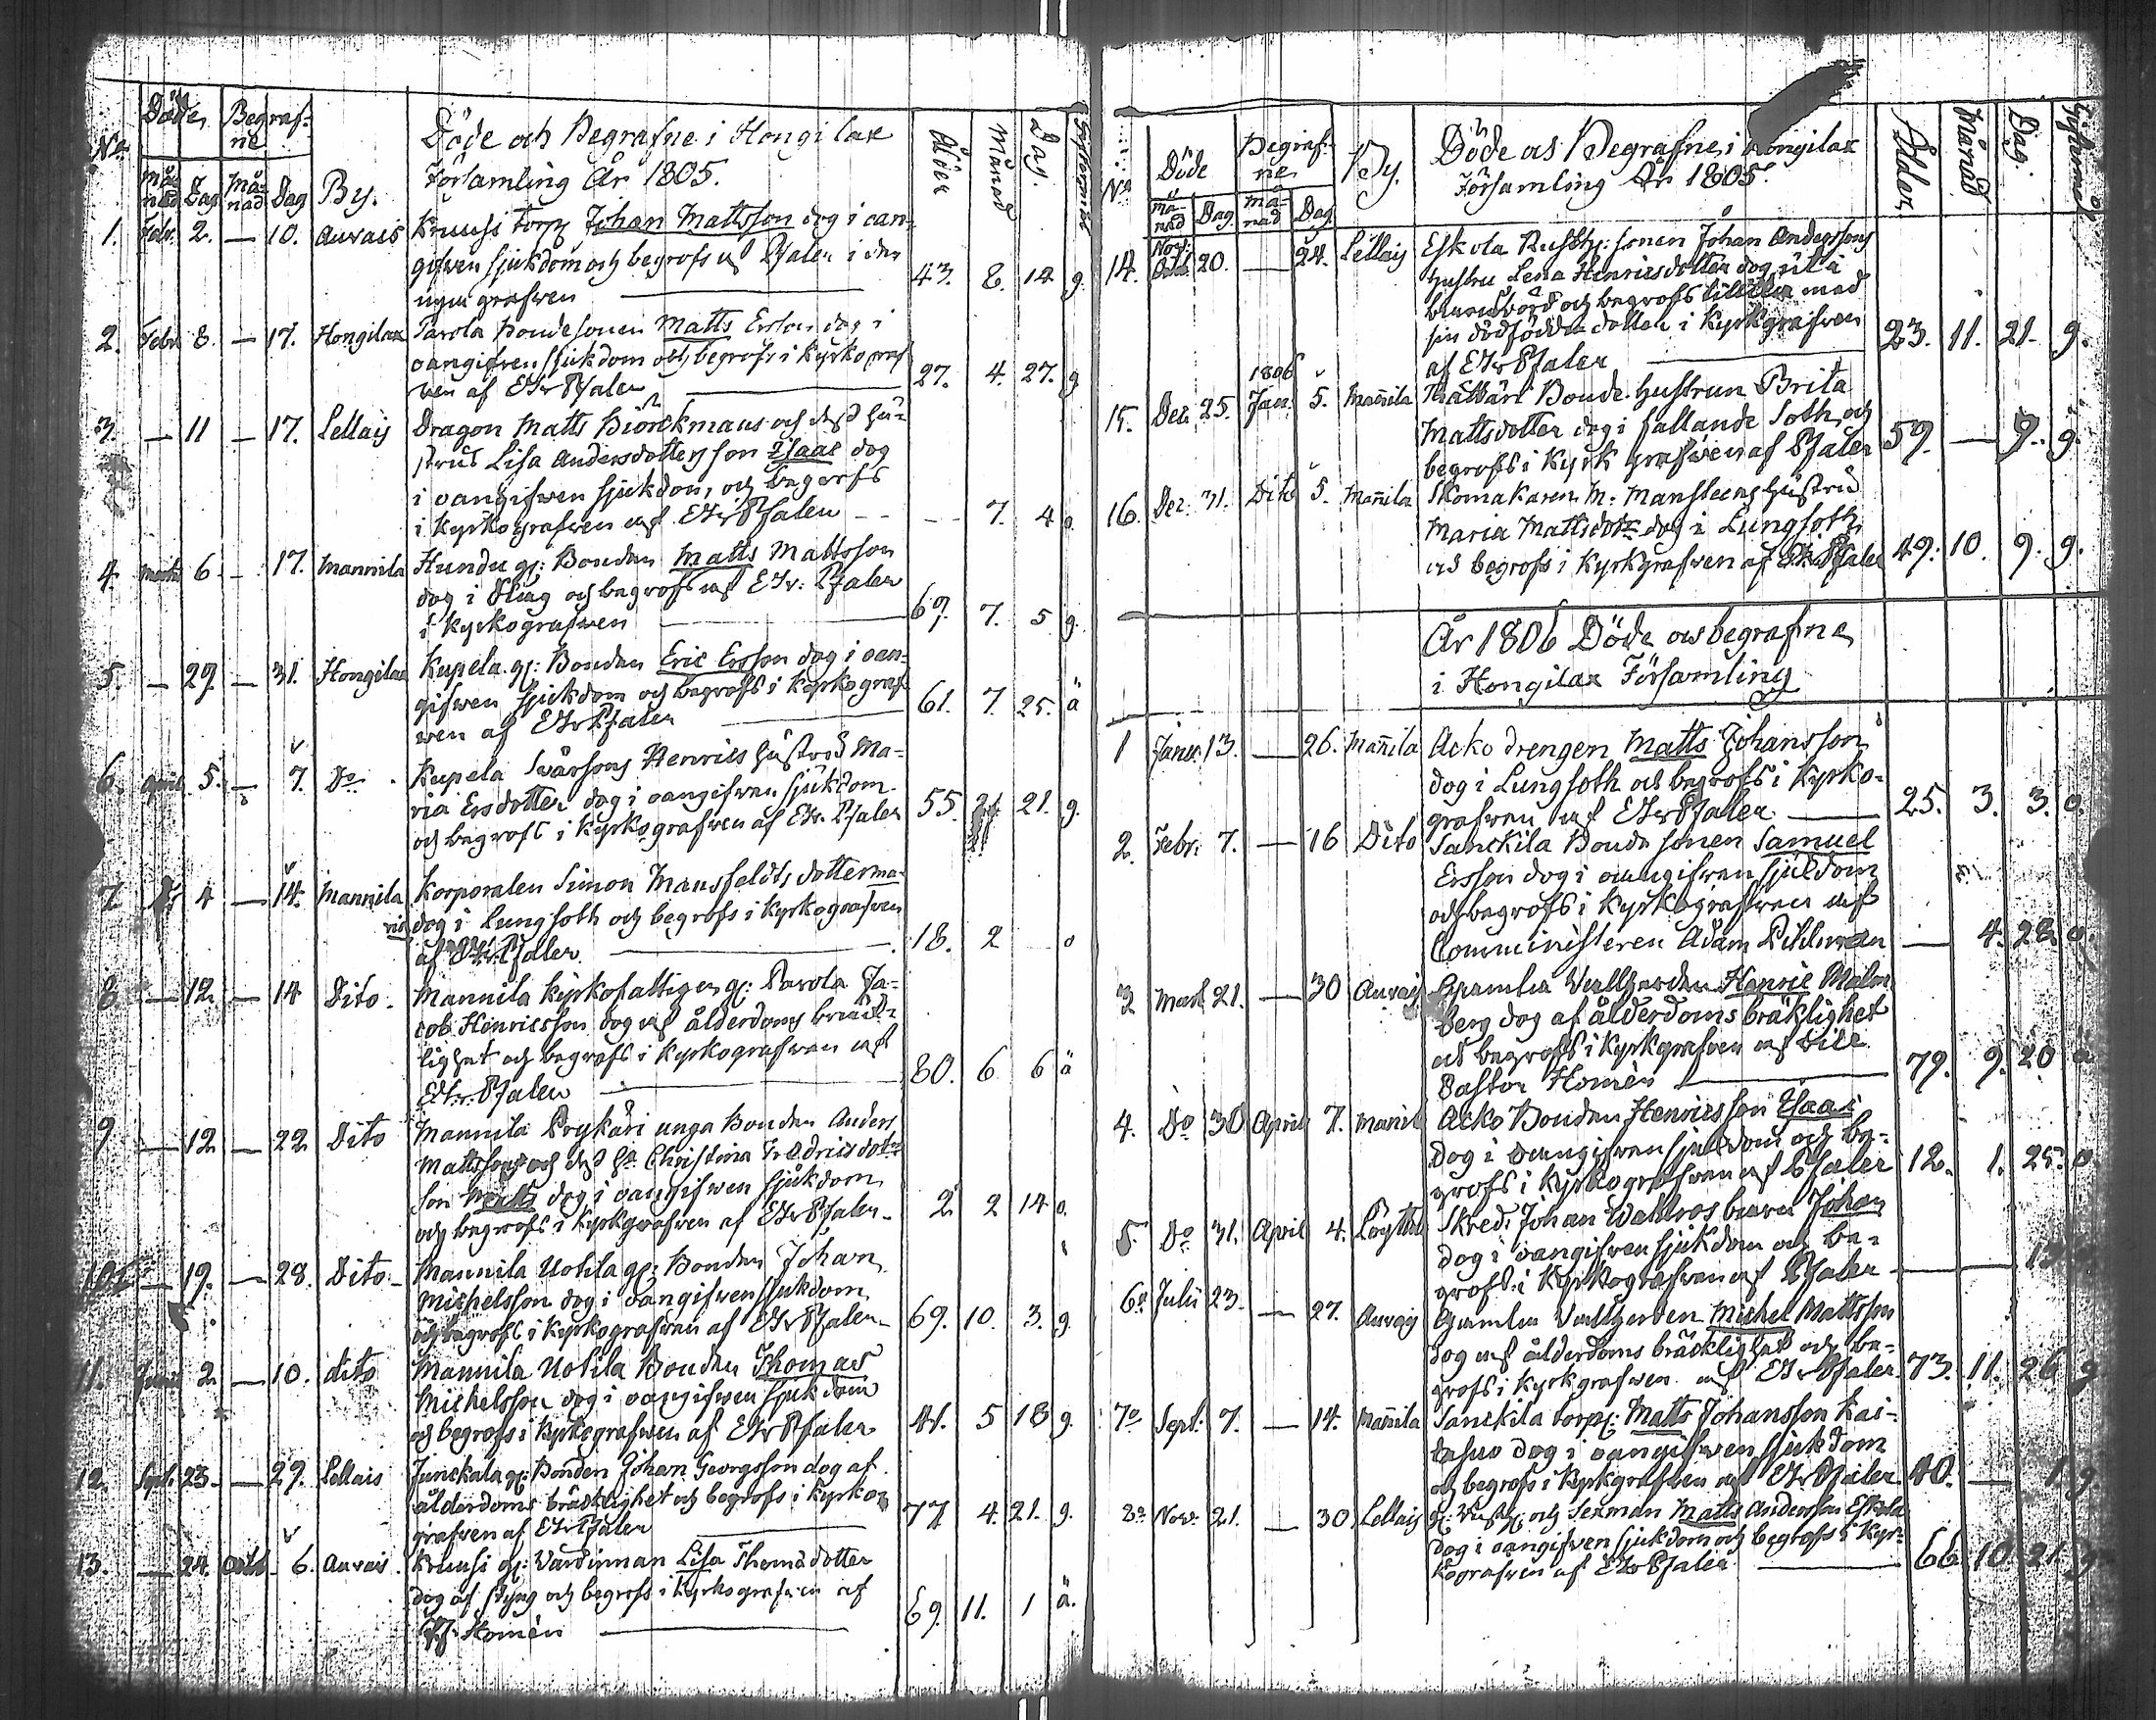 Döde Begraf-
ne
No
Må-
nad Dag Må-
nad Dag By.
Döde och Begrafne i Hongilax
Församling År 1805.
Ålder Månad Dag.
1. Febr. 2. — 10. Auvais Kruusi torp. Johan Mattsson dog i oan-
gifven sjukdom och begrofs af Pfaler i den
nya grafwen 43. 8. 14 g.
2. Febr. 8. — 17. Hongilax Parola Bondesonen Matts Ersson dog i
oangifven sjukdom och begrofs i kyrkograf
ven af EHr Pfaler 27. 4. 27. g
3. — 11 — 17. Lellais Dragon Matts Biörckmans och dess hu-
strus Lisa Andersdotters son Isaac dog
i oangifwen sjukdom, och begrofs
i kyrkografwen af EHr Pfaler 7. 4 o.
4. Martii 6. — 17. Mannila Hundu gl: Bonden Matts Mattsson
dog i Slag och begrofs af EHr: Pfaler
i kyrkografwen 69. 7. 5 g.
5. — 29 — 31. Hongilax Kupela gl: Bonden Eric Ersson dog i oan-
gifwen sjukdom och begrofs i kyrkograf-
wen af EHr Pfaler 61. 7. 25. ä
6. April 5. — 7. Do Kupela Svärsons Henrics hustru Ma-
ria Ersdotter dog i oangifwen sjukdom
och begrofs i kyrkografwen af EHr. Pfaler 55. 21. g.
7 Do 4 — 14. Mannila Korporalen Simon Mansfeldts dotter Ma-
ria dog i Lungsoth och begrofs i kyrkografven
af EHr. Pfaler. 18. 2 o
8 — 12 — 14 Dito. Mannila kyrkofattigen gl: Parola Ja-
cob Henricsson dog af ålderdoms bräck-
lighet och begrofs i kyrkografwen af
EHr. Pfaler 80. 6 6 ä
9 — 12 — 22 Dito Mannila Prykäri unga Bonden Anders
Mattssons och dess h: Christina Fredricsdotrs
son Matts dog i oangifwen sjukdom
och begrofs i kyrkgrafwen af EHr Pfaler 2. 2 14 o.
10 — 19. — 28. Dito Mannila Uotila gl: Bonden Johan
Michelsson dog i oangifwen sjukdom
och begrofs i kyrkografwen af EHr Pfaler 69. 10. 3. g.
11. Junii 2 — 10. dito Mannila Uotila Bonden Thomas
Michelsson dog i oangifwen sjukdom
och begrofs i kyrkografwen af EHr Pfaler 41. 5 18 g.
12. Sept. 23 — 29. Lellais Junckala gl: Bonden Johan Georgsson dog af
ålderdoms bräcklighet och begrofs i kyrko-
grafwen af EHr Pfaler 77 4. 21. g.
13. — 24. Octb. 6. Auvais. Kruusi gl: Värdinnan Lisa Thomasdotter
dog af styng och begrofs i kyrkografwen af
Homén 69. 11. 1 ä.
No Döde Begraf-
ne By.
Må-
nad Dag Må-
nad Dag
Döde och Begrafne i Hongilax
Församling År 1805.
Ålder Månad Dag.
14. Octb. 20. — 24. Lellais Eskola Rusth: sonen Johan Anderssons
hustru Lena Henricsdotter dog uti
barnsbörd och begrofs tillika med
sin dödfödda dotter i kyrkgrafwen
af EHr Pfaler 23. 11. 21. g.
1806
15. Dec. 25. Jan. 5. Mañila Bonde hustrun Brita
Mattsdotter dog i fallande Soth och
begrofs i kyrkgrafwen af Pfaler 59. — 9. g.
16. Dec. 31. Dito 5. Mañila Skomakaren M: Mansteens hustru
Maria Mattsdotr dog i Lungsoth
och begrofs i kyrkgrafwen af EHr Pfaler 49. 10. 9. g.
År 1806 Döde och begrafne
i Hongilax Församling
1 Janu. 13. — 26. Mañila Acko drengen Matts Johansson
dog i Lungsoth och begrofs i kyrko-
grafwen af EHr Pfaler 25. 3. 3. o.
2. Febr. 7. — 16 Dito Sanckila Bonde sonen Samuel
Ersson dog i oangifwen sjukdom
och begrofs i kyrkografwen af
Comministeren Adam Pihlman — 4. 28. o.
3 Mart 21. — 30 Auvais Gamla Vallherden Henric Malm
berg dog af ålderdoms bräklighet
och begrofs i kyrkgrafwen af Vice
Pastor Homén 79. 9. 20 ä
4. Do 30 April 7. Mañila Acko Bonden Henrics son Isaac
dog i oangifven sjukdom och be-
grofs i kyrkografwen af Pfaler 12. 1. 25. o
5. Do 31. April 4. Skred: Johan Wallros barn Johan
dog i oangifven sjukdom och be-
grofs i kyrkografwen af Pfaler
6. Julii 23 — 27. Auvais Gamla Vallherden Michel Mattsson
dog af ålderdoms bräcklighet och be-
grofs i kyrkgrafwen af EHr Pfaler 73. 11. 26 g
7. Sept. 7. — 14. Mañila Sanckila torp: Matts Johansson Kai-
dog i oangifwen sjukdom
och begrofs i kyrkgrafwen af EHr Pfaler 40. — 1 g
8. Nov. 21. — 30 Lellais gl: Rusth: och Sexman Matts Andersson Eskola
dog i oangifven sjukdom och begrofs i Kyr-
kografwen af EHr Pfaler 66. 10 21 g